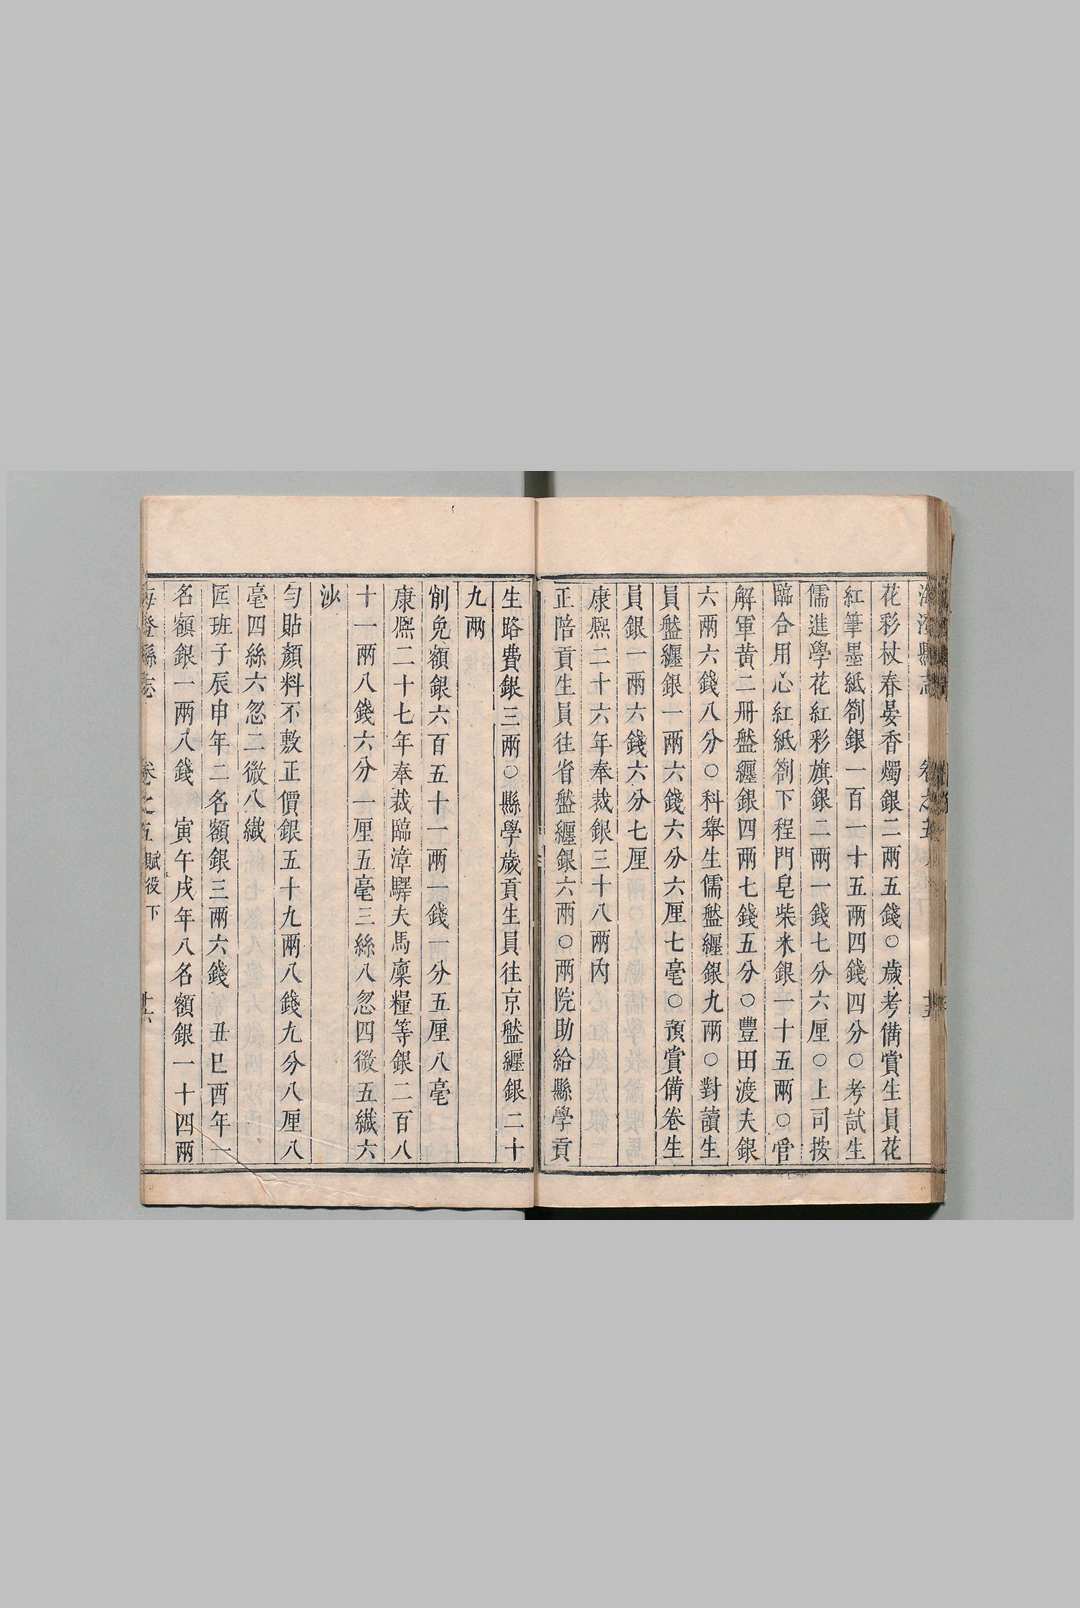 海澄縣志 卷之五
花彩杖春晏香燭銀二兩五錢○歲考備賞生員花
紅筆墨紙劄銀一百一十五兩四錢四分○考試生
儒進學花紅彩旗銀二兩一錢七分六厘○上司按
臨合用心紅紙劄下程門皂柴米銀一十五兩○官
解軍黃二册盤纏銀四兩七錢五分○豐田渡夫銀
六兩六錢八分○科舉生儒盤纏銀九兩○對讀生
員盤纏銀一兩六錢六分六厘七毫○預賞備卷生
員銀一兩六錢六分七厘
康熈二十六年奉裁銀三十八兩內
正陪貢生員往省盤纏銀六兩○兩院助給縣學貢
生路費銀三兩○縣學歲貢生員往京盤纏銀二十
九兩
削免額銀六百五十一兩一錢一分五厘八毫
康熈二十七年奉裁臨漳驛夫馬廩糧等銀二百八
十一兩八錢六分一厘五毫三絲八忽四微五纎六
沙
勻貼顏料不敷正價銀五十九兩八錢九分八厘八
毫四絲六忽二微八纎
匠班子辰申年二名額銀三兩六錢 丑巳酉年一
名額銀一兩八錢 寅午戌年八名額銀一十四兩
海澄縣志 卷之五 賦役下 十六